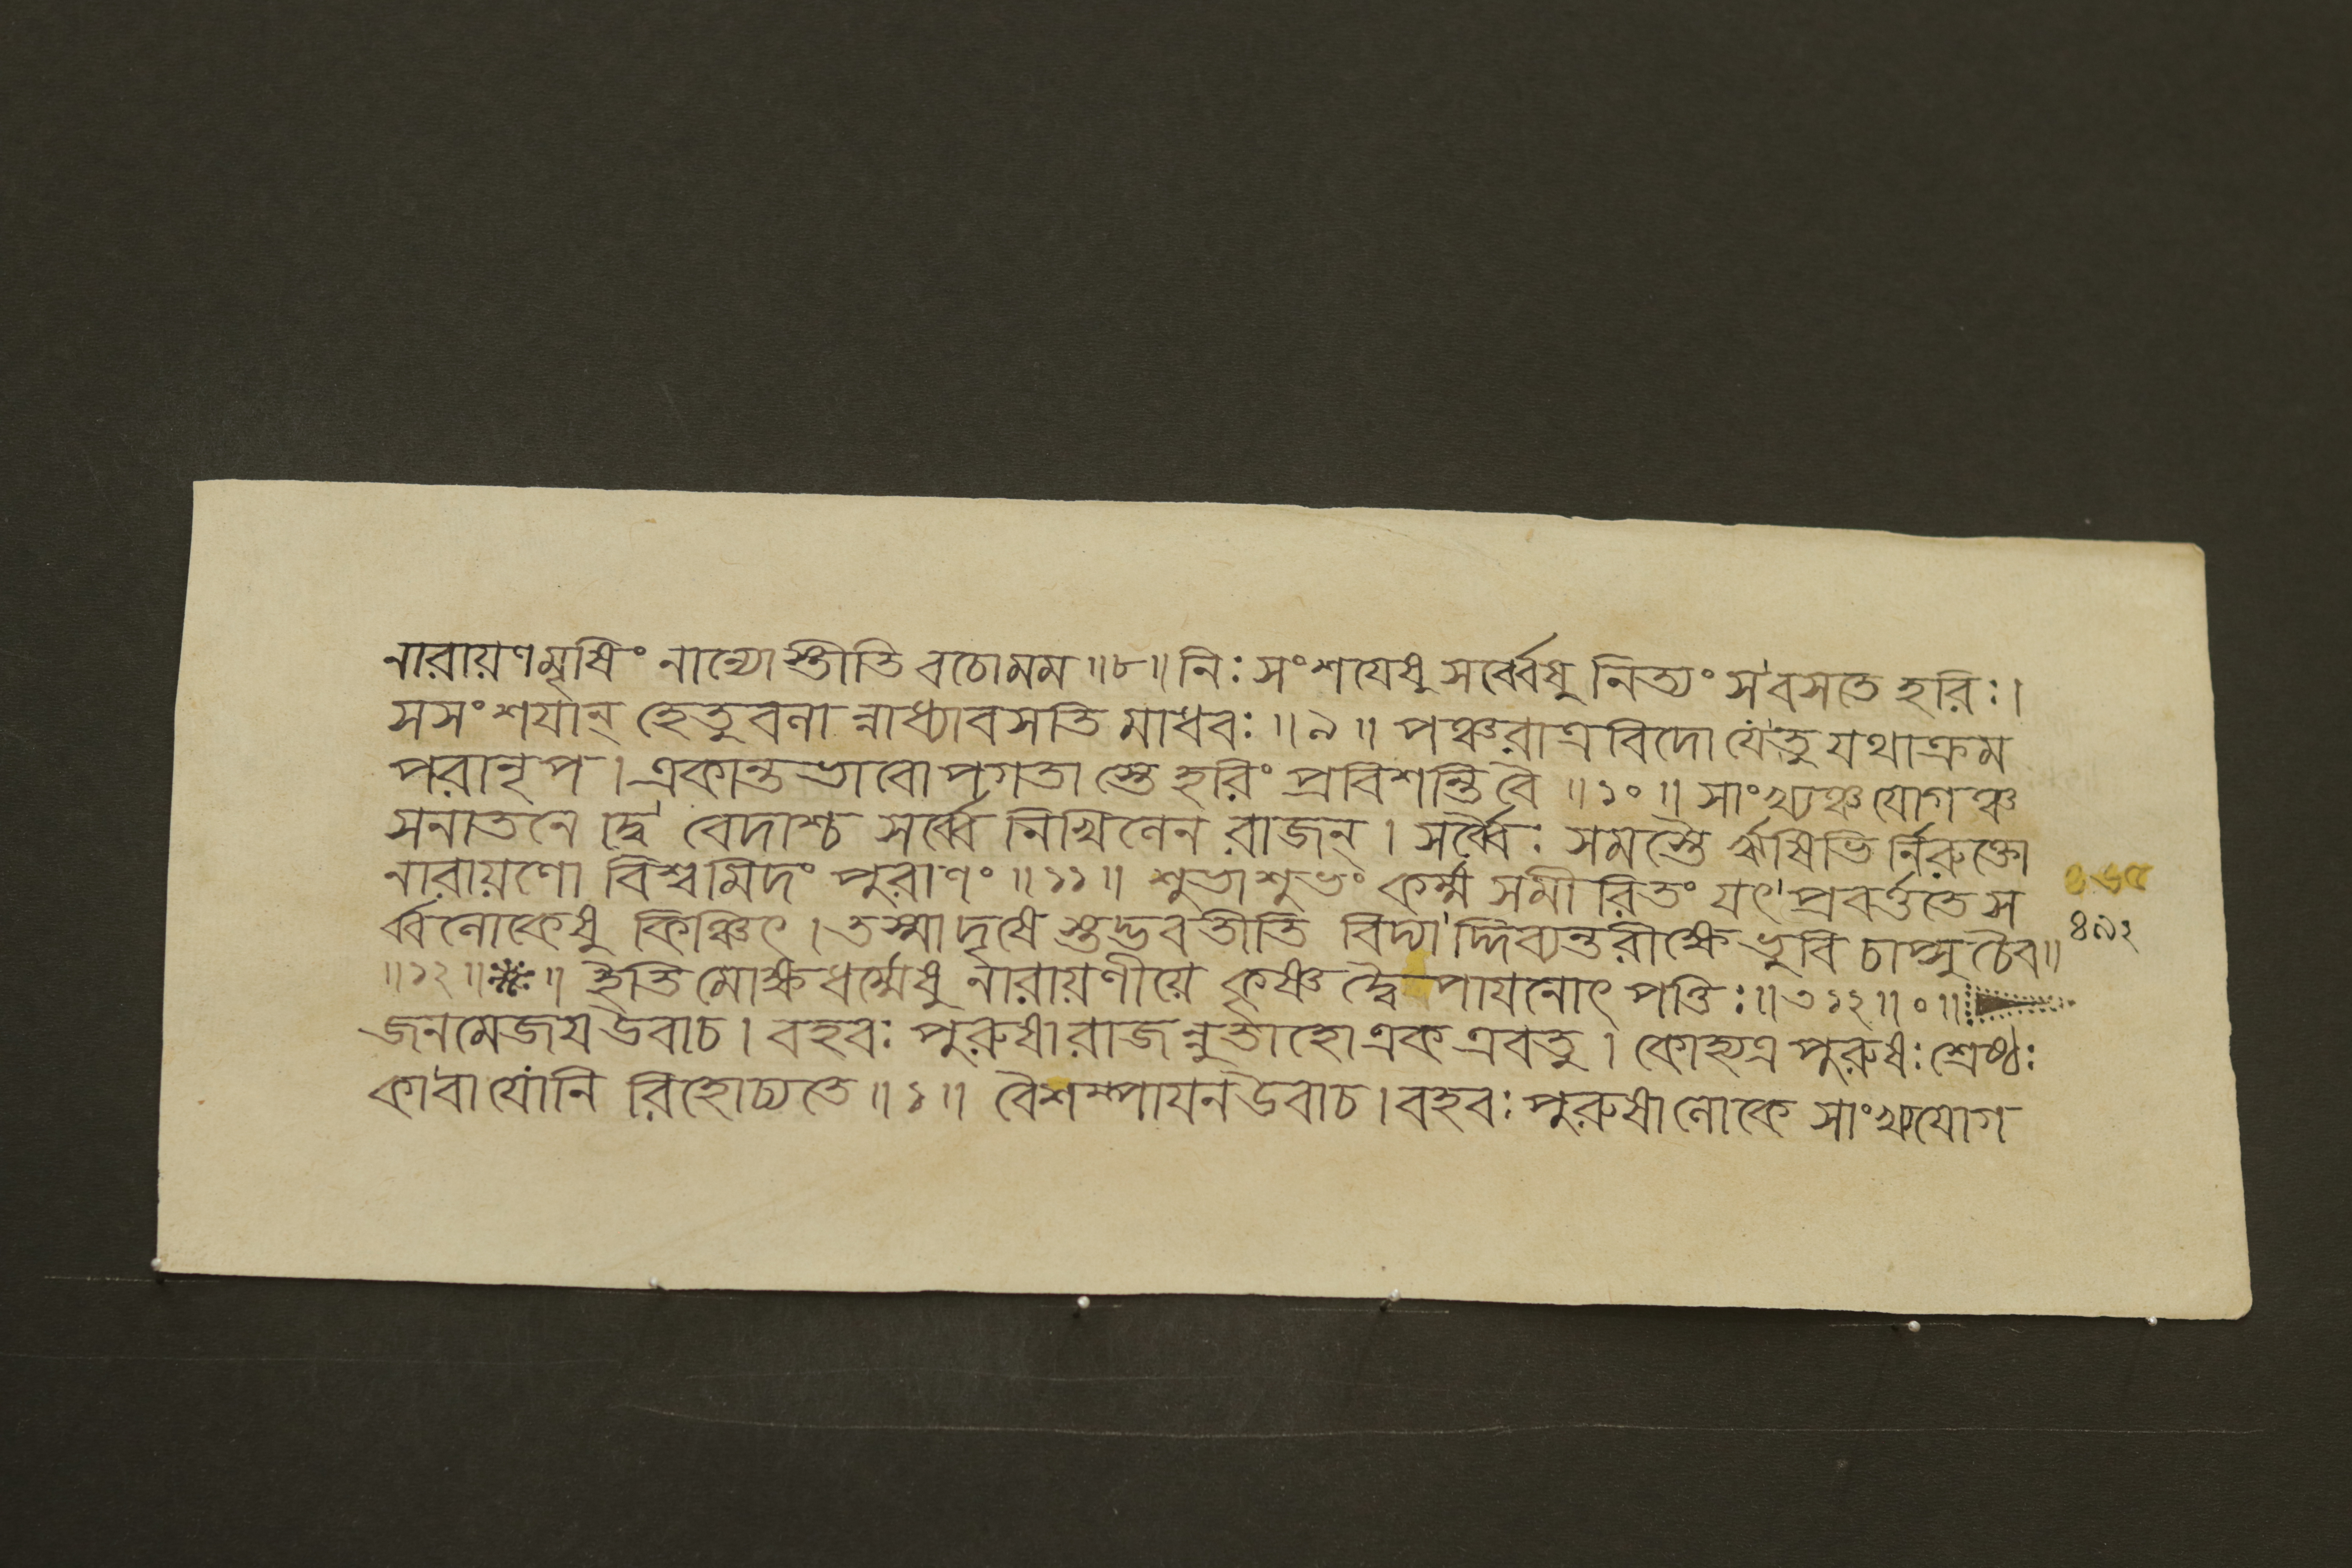 নারায়ণমৃষিং নান্যোস্তীতি বচোমম ॥৮॥ নিঃসংশযেষু সর্ব্বেষু নিত্যং সবসতে হরিঃ।
সসংশযান্ হেতুবলা ন্নাধ্যাবসতি মাধবঃ ॥৯॥ পঞ্চরাত্রবিদো যেতু যথাক্রম
পরানৃপ। একান্তভাবোপগতা স্তে হরিং প্রবিশন্তিবৈ ॥১০॥ সাংখ্যঞ্চ যোগঞ্চ
সনাতনে দ্বে বেদাশ্চ সর্ব্বে নিখিলেন রাজন্। সর্ব্বৈঃ সমস্তৈ র্ঋষিভি র্নিরুক্তো
নারায়ণো বিশ্বমিদং পুরাণং ॥১১॥ শুভাশুভং কর্ম্ম সমীরিতং যৎ প্রবর্ত্ততে স
র্ব্বলোকেষু কিঞ্চিৎ। তস্মাদৃষে স্তদ্ভবতীতি বিদ্যা দ্দিব্যন্তরীক্ষে ভুবি চাপ্সু চৈব॥
৪৯২
॥১২॥ ॥ ইতি মোক্ষধর্ম্মেষু নারায়ণীয়ে কৃষ্ণদ্বৈপাযনোৎপত্তিঃ॥৩১২॥০॥
জনমেজয উবাচ। বহবঃ পুরুষা রাজন্নুতাহো এক এবতু। কোহ্যত্র পুরুষঃ শ্রেষ্ঠঃ
কাবা যোনি রিহোচ্যতে ॥১॥ বৈশম্পাযন উবাচ। বহবঃ পুরুষা লোকে সাংখ্যযোগ